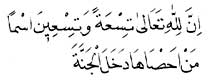 اِنَّ لِلّٰهِ تَعَالٰى تِسْعَةً وَتِسْعِينَ اسْمًا
مَنْ اَحْصَاهَا دَخَلَ الْجَنَّةَ